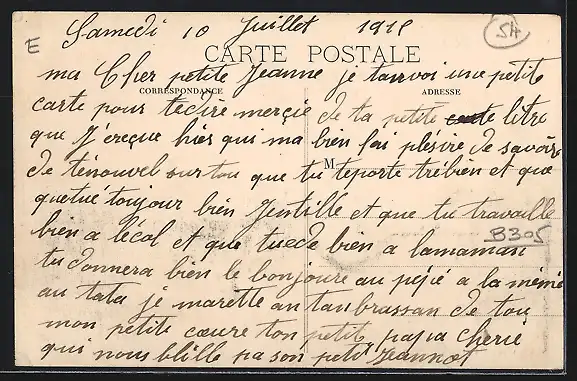 E
Samedi 10 Juillet 1915
54
CARTE POSTALE
ma Cher petite Jeanne je tanvoi une petite
CORRESPONDANCE
ADRESSE
carte pour tedire merçie de ta petite letre
que J'ereçue hiés qui ma bien fai plésire de savoire
M
de ténouvel surtou que tu teporte trébien et que
quetué toujour bien Jentille et que tu travaille
B305
bien a lécol et que tuede bien a lamaman
tu donnera bien le bonjoure au pépé a la mémé
au tata je marette an tanbrassan de tou
mon petite cœure ton petit papa cherie
qui nous blille pa son petit Jeannot